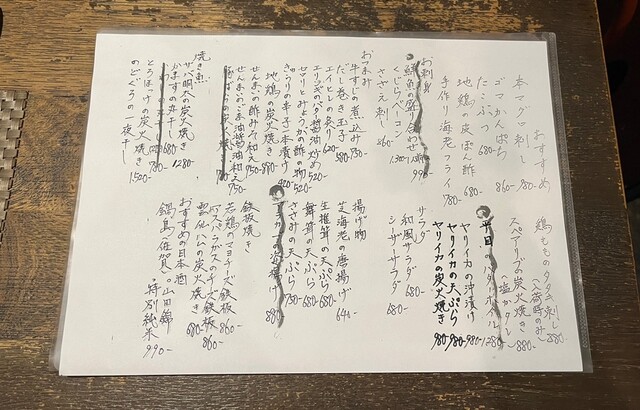 おすすめ
本マグロ刺し 980-
ゴマかんぱち 860-
たこぶつ 680-
地鶏の炭ぽん酢 780-
手作り海老フライ 780-
お刺身
鮮魚の盛り合わせ
くじらベーコン
さざえ刺し 860-
おつまみ
牛すじの煮込み 750-
だし巻き玉子 580-
エイヒレの炙り 620-
エリンギのバタ醤油炒め 520-
セロリとみょうがの酢の物 520-
きゅうりの辛子一本漬け 420-
地鶏の炭火焼き 980-
せんまいの酢みそ和え 750-
せんまいのごま油醤油和え 750-
焼き魚
サバ明太の炭火焼き 1280-
かますの丸干し 680-
とろほっけの炭火焼き
のどぐろの一夜干し 1500-
鶏もものタタキ刺し 880-
(入荷時のみ)
スペアリブの炭火焼き 880-
ヤリイカの沖漬け 980-
ヤリイカの天ぷら 980-
ヤリイカの炭火焼き 980-
サラダ
和風サラダ 680-
シーザーサラダ 680-
揚げ物
芝海老の唐揚げ 644
生椎茸の天ぷら 680-
舞茸の天ぷら 680-
ささみの天ぷら 780-
鉄板焼き
若鶏のマヨチーズ鉄板 860-
アスパラガスのチーズ鉄板 860-
雲仙ハムの炭火焼き 680-
おすすめの日本酒
鍋島(佐賀)。山田錦
特別純米 990-